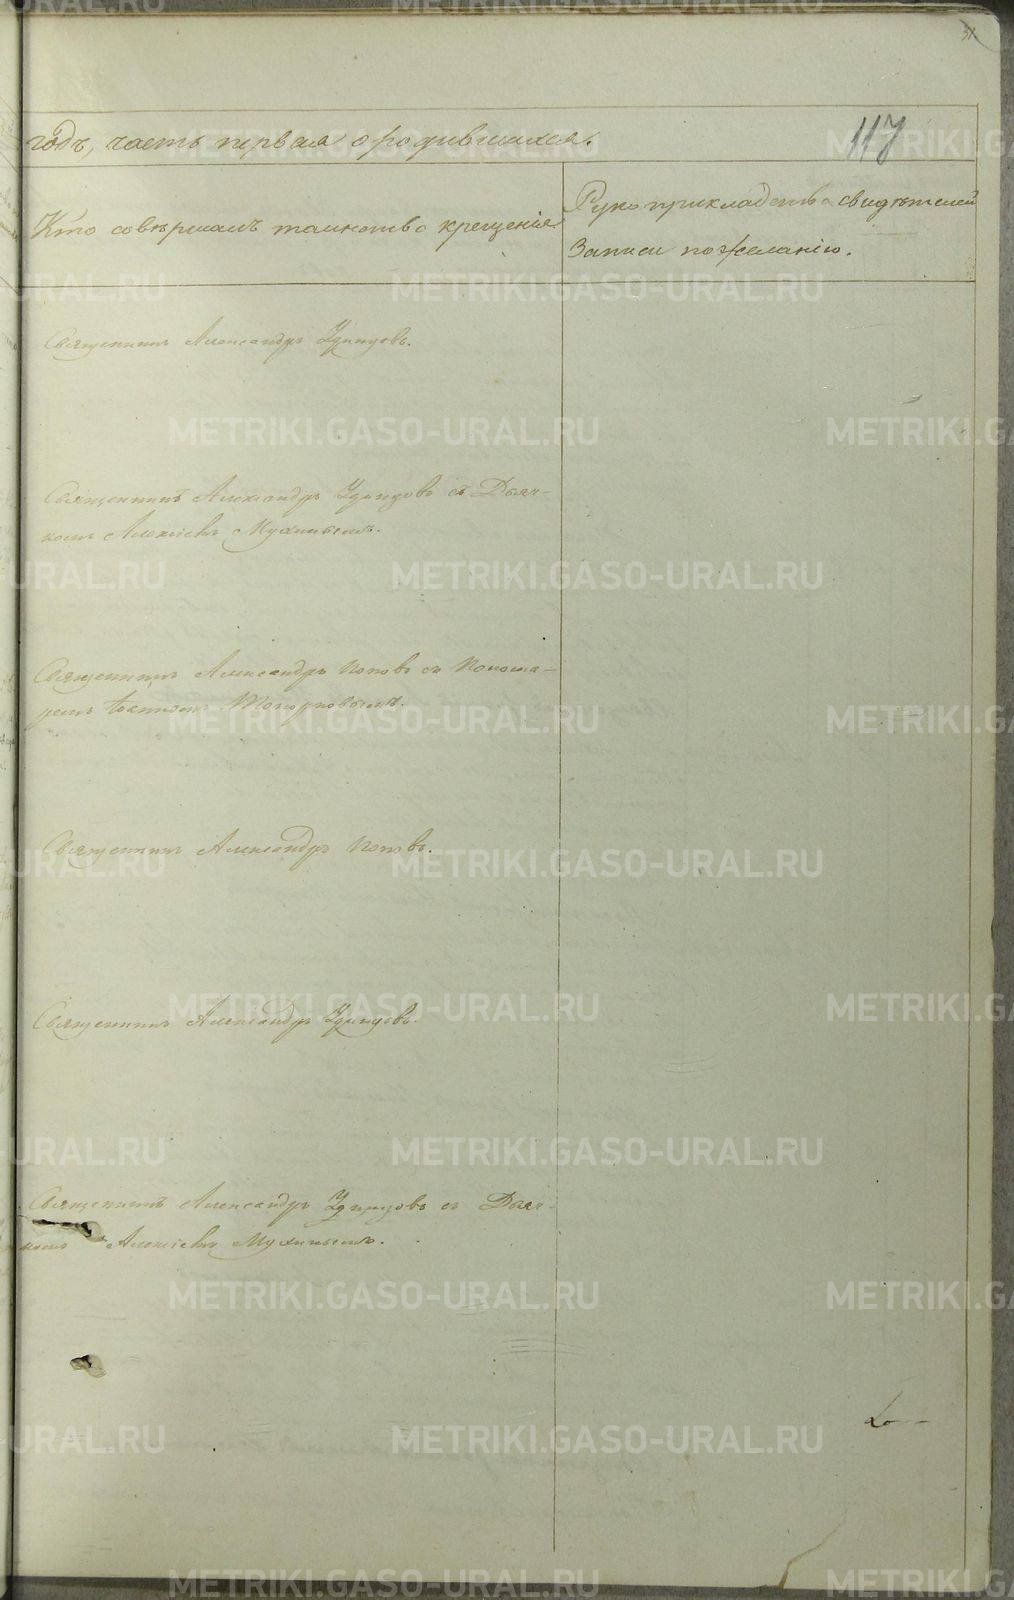 31
годъ, часть первая о родившихся.
117
Кто совершалъ таинство крещенія
Рукоприкладство свидѣтелей
записи по желанію.
Священникъ Александръ Удинцовъ.
Священникъ Александръ Удинцовъ съ Дьяч-
комъ Алексіемъ Мухинымъ.
Священникъ Александръ Поповъ съ Понома-
ремъ Іоанномъ Топорковымъ.
Священникъ Александръ Поповъ.
Священникъ Александръ Удинцовъ.
Священникъ Александръ Удинцовъ съ Дьяч-
комъ Алексіемъ Мухинымъ.
METRIKI.GASO-URAL.RU